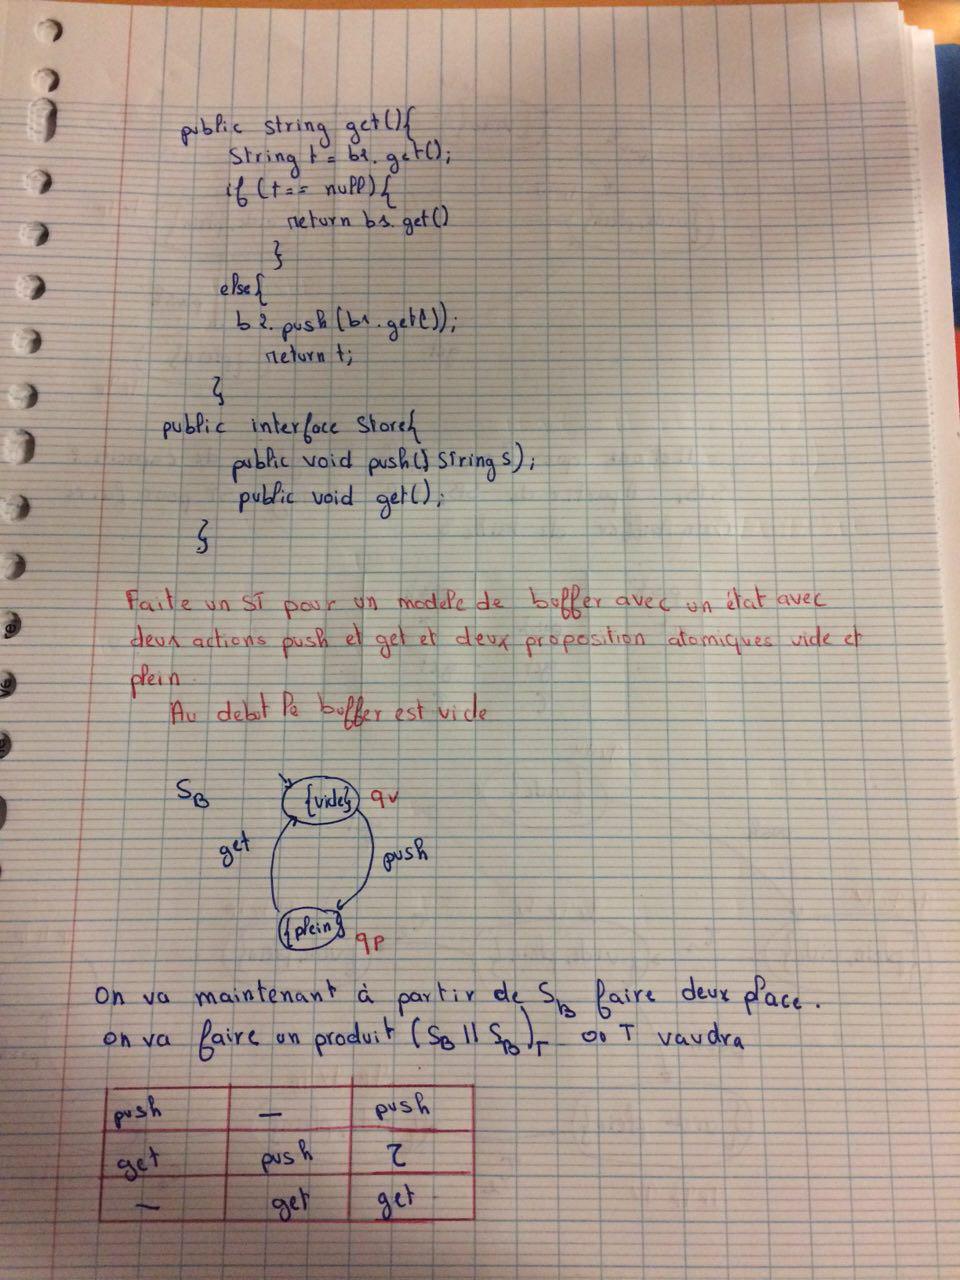 public string get(){
String t = b2. get();
if (t == null){
return b1. get()
}
else{
b2. push (b1. get());
return t;
}
public interface Store{
public void push() String s);
public void get();
}
Faite un ST pour un modele de buffer avec un état avec
deux actions push et get et deux proposition atomiques vide et
plein.
Au debut le buffer est vide
S_B
{vide} qv
get
push
{plein} qp
On va maintenant à partir de S_B faire deux place.
On va faire un produit (S_B || S_B)_T où T vaudra
push — push
get push τ
— get get